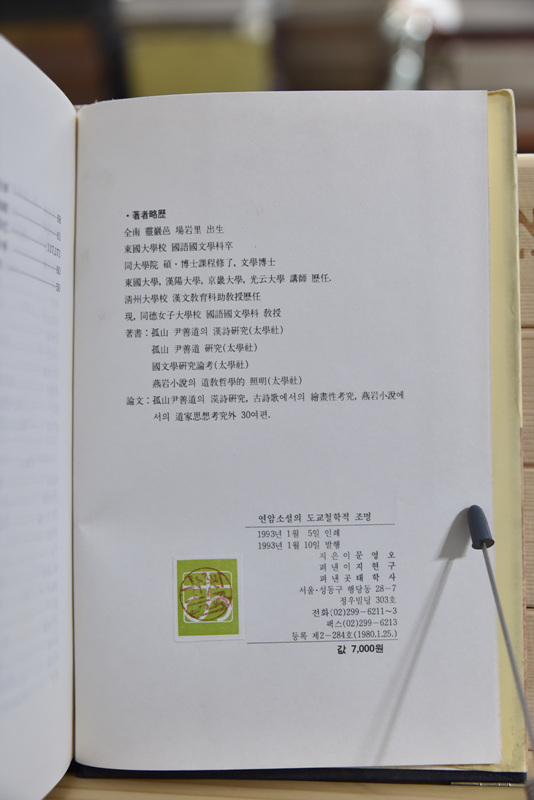 68
61
117,173
60
50
· 著者略歷
全南 靈巖邑 場岩里 出生
東國大學校 國語國文學科卒
同大學院 碩·博士課程修了, 文學博士
東國大學, 漢陽大學, 京畿大學, 光云大學 講師 歷任.
淸州大學校 漢文敎育科助敎授歷任
現, 同德女子大學校 國語國文學科 敎授
著書 : 孤山 尹善道의 漢詩硏究(太學社)
孤山 尹善道 硏究(太學社)
國文學硏究論考(太學社)
燕岩小說의 道敎哲學的 照明(太學社)
論文 : 孤山尹善道의 漢詩硏究, 古詩歌에서의 繪畫性考究, 燕岩小說에
서의 道家思想考究外 30여편.
연암소설의 도교철학적 조명
1993년 1월 5일 인쇄
1993년 1월 10일 발행
지은이 문 영 오
펴낸이 지 현 구
펴낸곳 태 학 사
서울·성동구 행당동 28-7
정우빌딩 303호
전화(02)299-6211~3
팩스(02)299-6213
등록 제2-284호(1980.1.25.)
값 7,000원